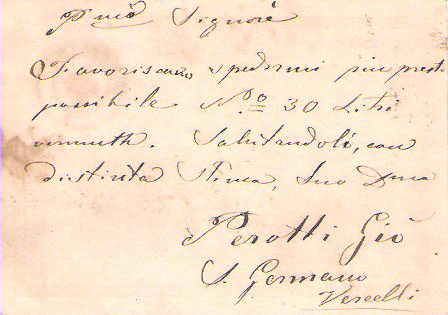 Pmi Signori
Favoriscano spedirmi piu prest
possibile No 30 Litri
vermuth. Salutandoli, con
distinta Stima, Suo
Perotti Gio
S. Germano
Vercelli